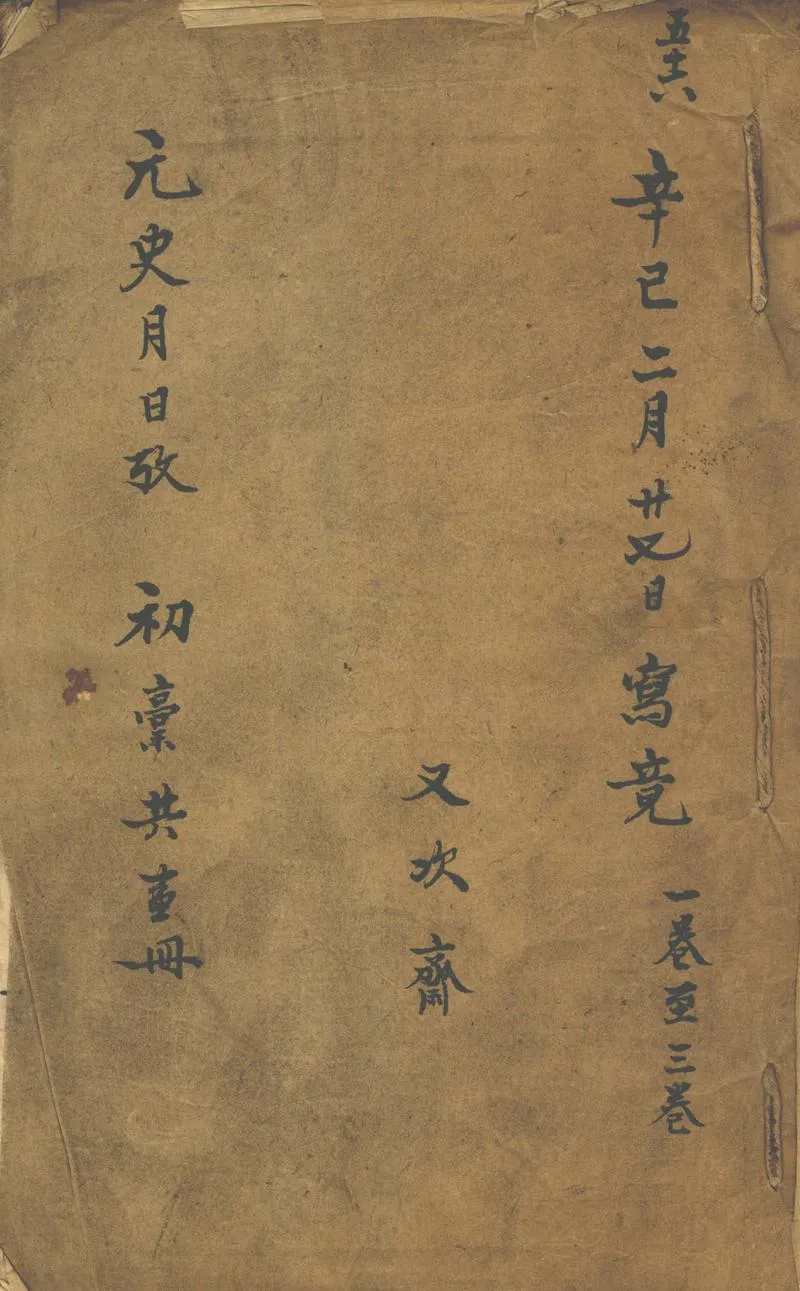 五十六
辛巳二月廿日寫竟 一巻至三巻
又次齋
元史月日攷 初稾共壹冊